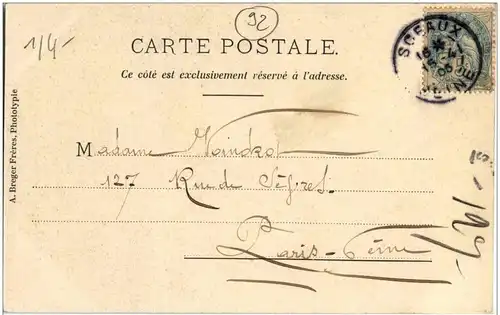 1/4-
92
CARTE POSTALE.
Ce côté est exclusivement réservé à l'adresse.
SCEAUX
SEINE
A. Breger Frères, Phototypie
Madame
127 Rue de Sèvres
Paris-6ème